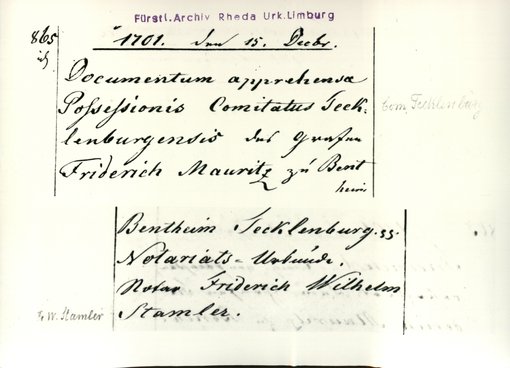 Fürstl. Archiv Rheda Urk. Limburg
865
1701. den 15. Decbr.
Documentum apprehensae
Possessionis Comitatus Teck-
lenburgensis des Grafen
Friderich Mauritz zu Bent
heim
Com. Tecklenburg
Bentheim Tecklenburg. ss.
Notariats-Urkunde.
Notar Friderich Wilhelm
Stamler.
Fr. W. Stamler